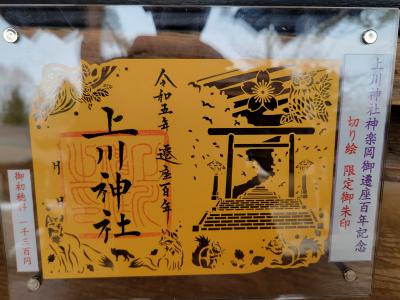 上川神社神楽岡御遷座百年記念
切り絵 限定御朱印
令和五年 遷座百年
上川神社
月 日
御初穂料 一千三百円